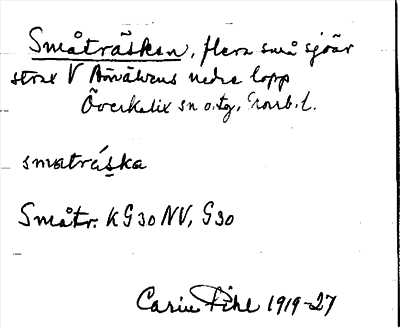 Småträsken, flera små sjöar
strax V Änälvens nedre lopp
Överkalix sn o. tg, Norrb. l.
smatráska
Småtr. KG30NV, G30
Carin Pihl 1919-27